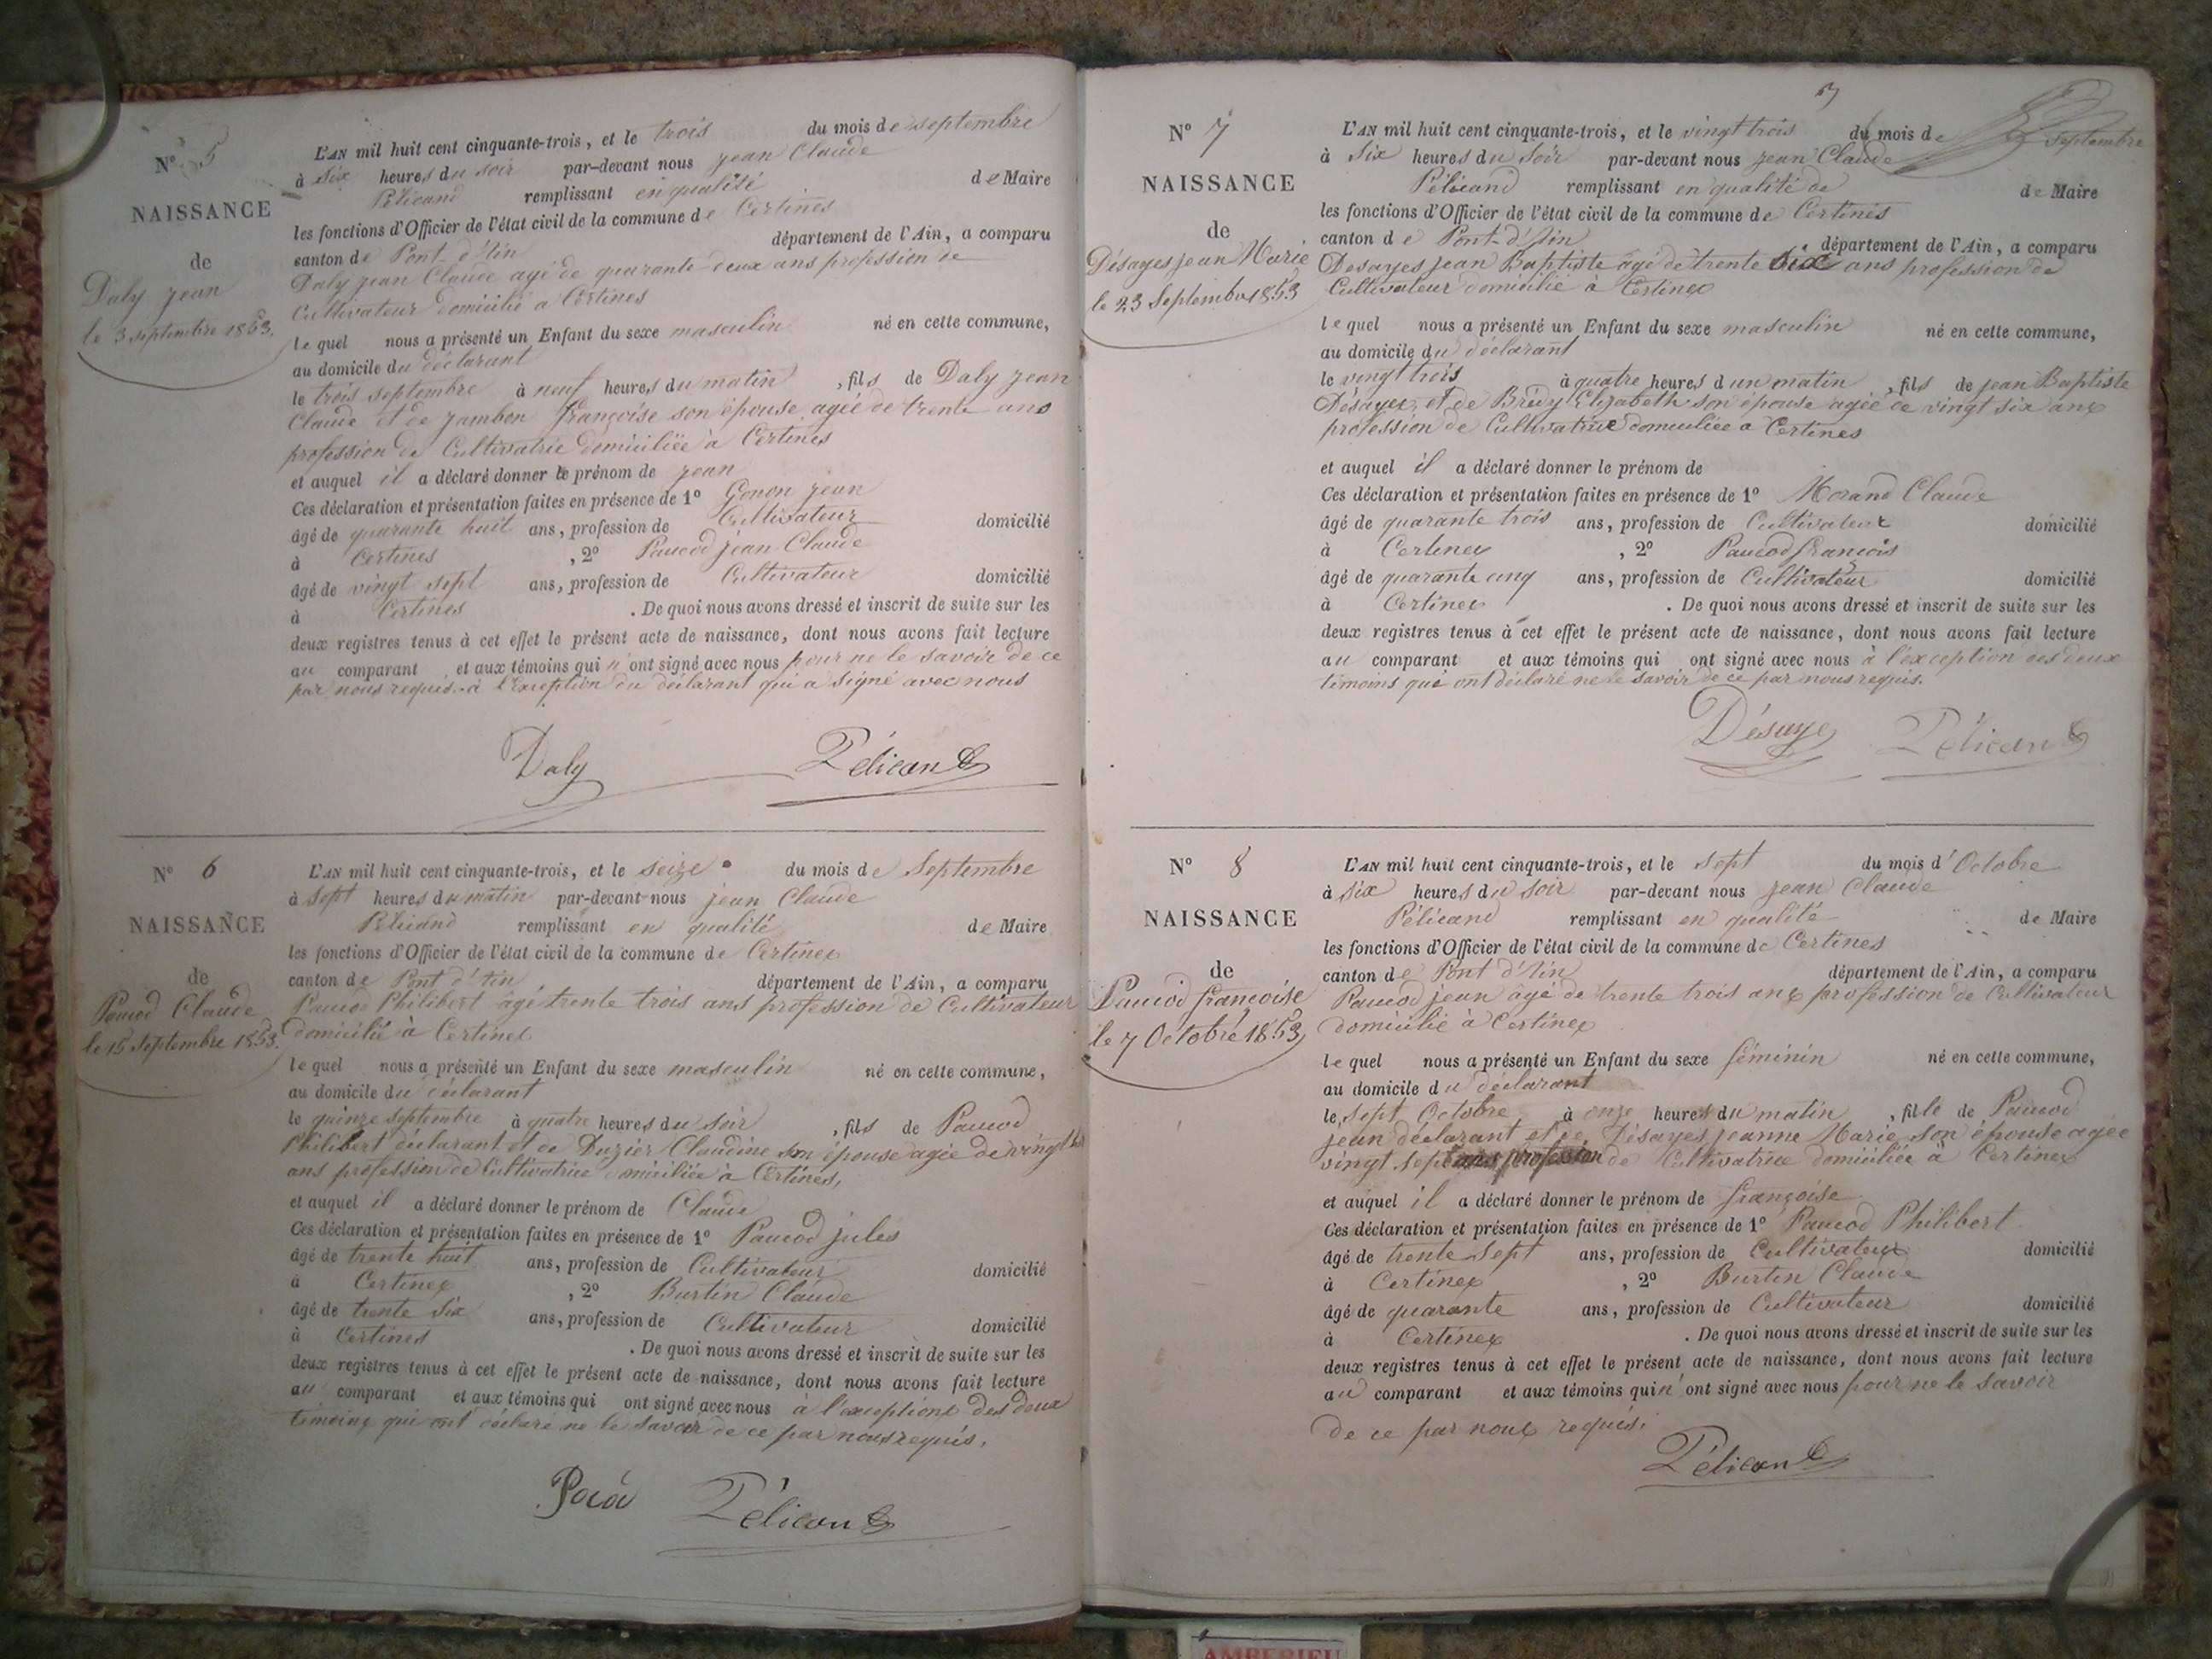 N° 5
NAISSANCE
de
Daly jean
le 3 septembre 1853.
L'AN mil huit cent cinquante-trois, et le trois du mois de septembre
à six heures du soir par-devant nous jean Claude
Pélicand remplissant en qualité de Maire
les fonctions d'Officier de l'état civil de la commune de Certines
canton de Pont d'Ain département de l'Ain, a comparu
Daly jean Claude agé de quarante deux ans profession de
Cultivateur domicilié a Certines
lequel nous a présenté un Enfant du sexe masculin né en cette commune,
au domicile du déclarant
le trois septembre à neuf heures du matin, fils de Daly jean
Claude et de jambon françoise son épouse agée de trente ans
profession de Cultivatrice domiciliée à Certines
et auquel il a déclaré donner le prénom de jean
Ces déclaration et présentation faites en présence de 1° Gonon jean
âgé de quarante huit ans, profession de Cultivateur domicilié
à Certines, 2° Paucod jean Claude
âgé de vingt sept ans, profession de Cultivateur domicilié
à Certines. De quoi nous avons dressé et inscrit de suite sur les
deux registres tenus à cet effet le présent acte de naissance, dont nous avons fait lecture
au comparant et aux témoins qui n'ont signé avec nous pour ne le savoir de ce
par nous requis à l'exception du déclarant qui a signé avec nous
Daly Pélicand
N° 6
NAISSANCE
de
Paucod Claude
le 15 septembre 1853.
L'AN mil huit cent cinquante-trois, et le seize du mois de Septembre
à sept heures du matin par-devant nous jean Claude
Pélicand remplissant en qualité de Maire
les fonctions d'Officier de l'état civil de la commune de Certines
canton de Pont d'Ain département de l'Ain, a comparu
Paucod Philibert âgé trente trois ans profession de Cultivateur
domicilié à Certines
lequel nous a présenté un Enfant du sexe masculin né en cette commune,
au domicile du déclarant
le quinze septembre à quatre heures du soir, fils de Paucod
Philibert déclarant et de Duzier Claudine son épouse agée de vingt
ans profession de Cultivatrice domiciliée à Certines,
et auquel il a déclaré donner le prénom de Claude
Ces déclaration et présentation faites en présence de 1° Paucod jules
âgé de trente huit ans, profession de Cultivateur domicilié
à Certines, 2° Burtin Claude
âgé de trente six ans, profession de Cultivateur domicilié
à Certines. De quoi nous avons dressé et inscrit de suite sur les
deux registres tenus à cet effet le présent acte de naissance, dont nous avons fait lecture
au comparant et aux témoins qui ont signé avec nous à l'exceptions des deux
témoins qui ont déclaré ne le savoir de ce par nous requis.
Pélicand
3
N° 7
NAISSANCE
de
Désayes jean Marie
le 23 Septembre 1853
L'AN mil huit cent cinquante-trois, et le vingt trois du mois de Septembre
à Six heures du Soir par-devant nous jean Claude
Pélicand remplissant en qualité de de Maire
les fonctions d'Officier de l'état civil de la commune de Certines
canton de Pont-d'Ain département de l'Ain, a comparu
Desayes jean Baptiste âgé de trente six ans profession de
Cultivateur domicilié a Certines
lequel nous a présenté un Enfant du sexe masculin né en cette commune,
au domicile du déclarant
le vingt trois à quatre heures d un matin, fils de jean Baptiste
Désayes, et de Bruy Elizabeth son épouse agée de vingt six ans
profession de Cultivatrice domiciliée a Certines
et auquel il a déclaré donner le prénom de
Ces déclaration et présentation faites en présence de 1° Morand Claude
âgé de quarante trois ans, profession de Cultivateur domicilié
à Certines, 2° Paucod françois
âgé de quarante cinq ans, profession de Cultivateur domicilié
à Certines. De quoi nous avons dressé et inscrit de suite sur les
deux registres tenus à cet effet le présent acte de naissance, dont nous avons fait lecture
au comparant et aux témoins qui ont signé avec nous à l'exception des deux
témoins qui ont déclaré ne le savoir de ce par nous requis.
Désaye Pélicand
N° 8
NAISSANCE
de
Paucod françoise
le 7 Octobre 1853
L'AN mil huit cent cinquante-trois, et le sept du mois d'Octobre
à six heures du soir par-devant nous jean Claude
Pélicand remplissant en qualité de Maire
les fonctions d'Officier de l'état civil de la commune de Certines
canton de Pont d'Ain département de l'Ain, a comparu
Paucod jean âgé de trente trois ans profession de Cultivateur
domicilié à Certines
lequel nous a présenté un Enfant du sexe féminin né en cette commune,
au domicile du déclarant
le sept Octobre à onze heures du matin, fille de Paucod
jean déclarant et de Désayes jeanne Marie son épouse agée
vingt sept ans profession de Cultivatrice domiciliée à Certines
et auquel il a déclaré donner le prénom de françoise
Ces déclaration et présentation faites en présence de 1° Paucod Philibert
âgé de trente sept ans, profession de Cultivateur domicilié
à Certines, 2° Burtin Claude
âgé de quarante ans, profession de Cultivateur domicilié
à Certines. De quoi nous avons dressé et inscrit de suite sur les
deux registres tenus à cet effet le présent acte de naissance, dont nous avons fait lecture
au comparant et aux témoins qui n'ont signé avec nous pour ne le savoir
de ce par nous requis.
Pélicand
AMBERIEU